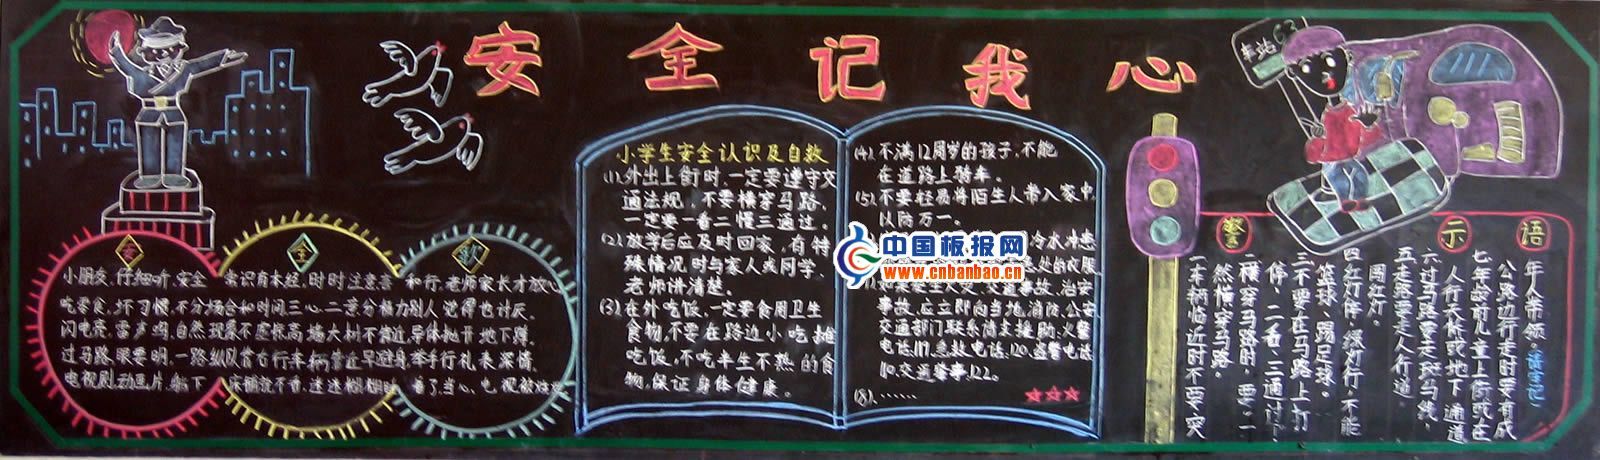 安全记我心
车站
63
安
全
歌
小朋友,仔细听,安全
常识有本经,时时注意言
和行,老师家长才放心
吃零食,坏习惯,不分场合和时间
三心二
别人觉得也讨厌
闪电亮,雷声鸣,自然现象
不
高墙大树不靠近,
地下蹲
过马路,眼要明,一路纵队
靠右行
车辆靠近早避身,举手行礼表深情
电视剧,动画片,躺下
看,迷迷糊糊
看了当心
小学生安全认识及自救
(1).外出上街时,一定要遵守交
通法规,不要横穿马路,
一定要一看二慢三通过。
(2).放学后应及时回家,有特
殊情况时与家人或同学、
老师讲清楚。
(3).在外吃饭,一定要食用卫生
食物,不要在路边小吃摊
吃饭,不吃半生不熟的食
物,保证身体健康。
(4).不满12周岁的孩子,不能
在道路上骑车。
(5).不要轻易将陌生人带入家中,
以防万一。
冷水冲患
处的衣服
治安
事故,应立即向当地消防、公安
交通部门联系请求援助。火警
电话119,急救电话120,盗警电话
110,交通肇事122。
(8).……
中国板报网
www.cnbanbao.cn
警
示
语
一车辆临近时不要突
然横穿马路。
二横穿马路时,要一
停、二看、三通过。
三不要在马路上打
篮球、踢足球。
四红灯停,绿灯行,不能
闯红灯。
五走路要走人行道。
六过马路要走斑马线,
人行天桥或地下通道
七年龄前儿童上街或在
公路边行走时要有成
年人带领。(请牢记)